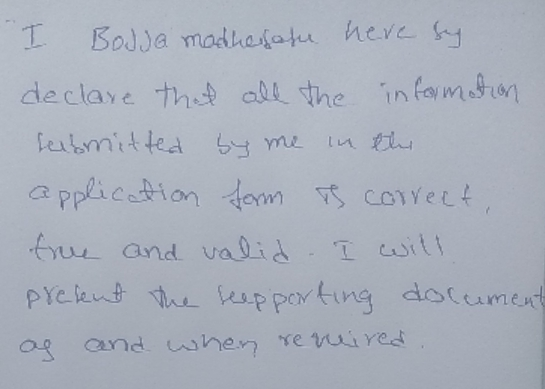 I Bojja madhusahu here by
declare that all the information
submitted by me in the
application form is correct,
true and valid. I will
present the supporting document
as and when required.